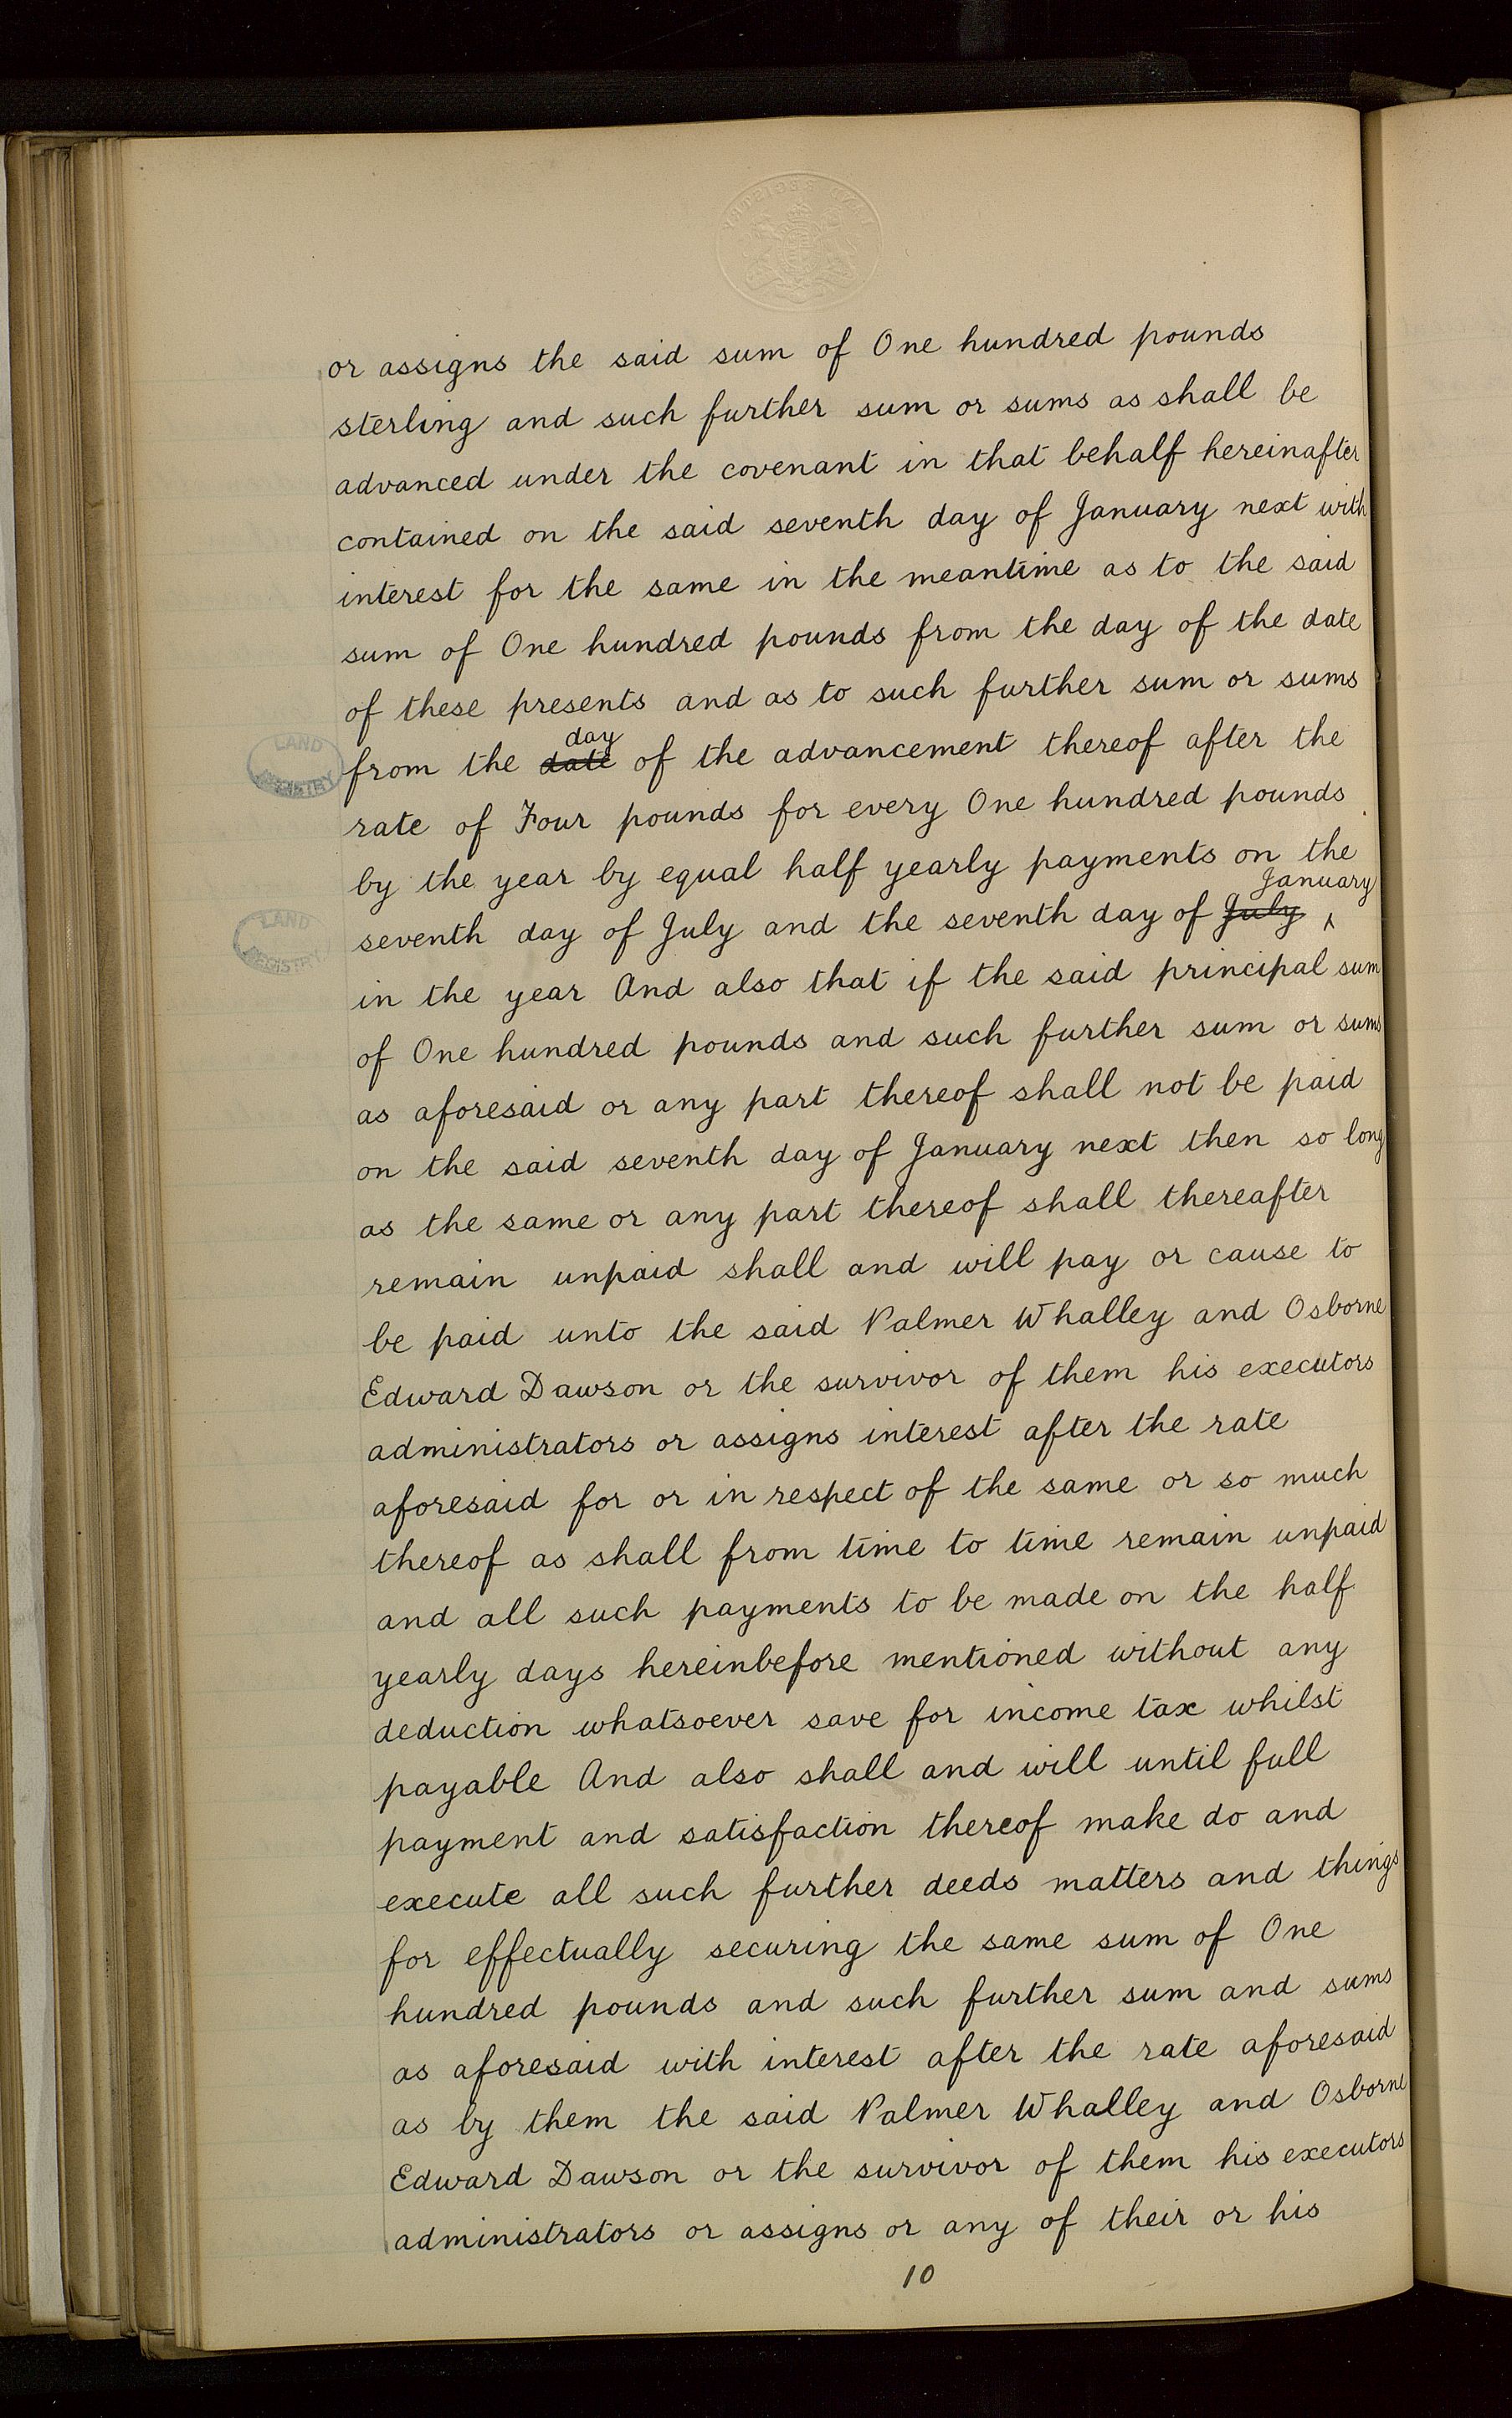 LAND REGISTRY
or assigns the said sum of One hundred pounds
sterling and such further sum or sums as shall be
advanced under the covenant in that behalf hereinafter
contained on the said seventh day of January next with
interest for the same in the meantime as to the said
sum of One hundred pounds from the day of the date
of these presents and as to such further sum or sums
day
LAND REGISTRY
from the date of the advancement thereof after the
rate of Four pounds for every One hundred pounds
by the year by equal half yearly payments on the
January
LAND REGISTRY
seventh day of July and the seventh day of July
in the year And also that if the said principal sum
of One hundred pounds and such further sum or sums
as aforesaid or any part thereof shall not be paid
on the said seventh day of January next then so long
as the same or any part thereof shall thereafter
remain unpaid shall and will pay or cause to
be paid unto the said Palmer Whalley and Osborne
Edward Dawson or the survivor of them his executors
administrators or assigns interest after the rate
aforesaid for or in respect of the same or so much
thereof as shall from time to time remain unpaid
and all such payments to be made on the half
yearly days hereinbefore mentioned without any
deduction whatsoever save for income tax whilst
payable And also shall and will until full
payment and satisfaction thereof make do and
execute all such further deeds matters and things
for effectually securing the same sum of One
hundred pounds and such further sum and sums
as aforesaid with interest after the rate aforesaid
as by them the said Palmer Whalley and Osborne
Edward Dawson or the survivor of them his executors
administrators or assigns or any of their or his
10